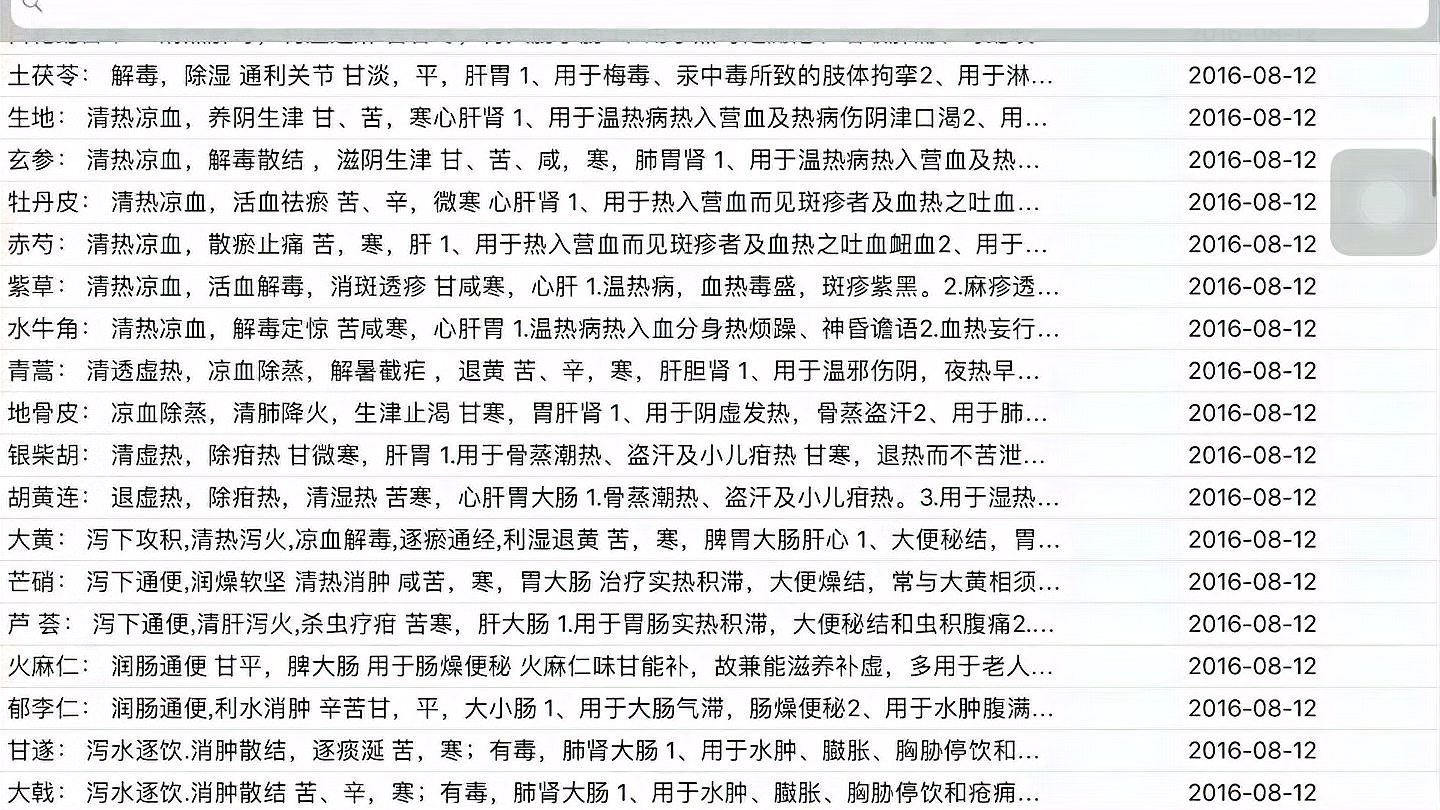 土茯苓： 解毒，除湿 通利关节 甘淡，平，肝胃 1、用于梅毒、汞中毒所致的肢体拘挛2、用于淋… 2016-08-12
生地： 清热凉血，养阴生津 甘、苦，寒心肝肾 1、用于温热病热入营血及热病伤阴津口渴2、用… 2016-08-12
玄参： 清热凉血，解毒散结 ，滋阴生津 甘、苦、咸，寒，肺胃肾 1、用于温热病热入营血及热… 2016-08-12
牡丹皮： 清热凉血，活血祛瘀 苦、辛，微寒 心肝肾 1、用于热入营血而见斑疹者及血热之吐血… 2016-08-12
赤芍： 清热凉血，散瘀止痛 苦，寒，肝 1、用于热入营血而见斑疹者及血热之吐血衄血2、用于… 2016-08-12
紫草： 清热凉血，活血解毒，消斑透疹 甘咸寒，心肝 1.温热病，血热毒盛，斑疹紫黑。2.麻疹透… 2016-08-12
水牛角： 清热凉血，解毒定惊 苦咸寒，心肝胃 1.温热病热入血分身热烦躁、神昏谵语2.血热妄行… 2016-08-12
青蒿： 清透虚热，凉血除蒸，解暑截疟 ，退黄 苦、辛，寒，肝胆肾 1、用于温邪伤阴，夜热早… 2016-08-12
地骨皮： 凉血除蒸，清肺降火，生津止渴 甘寒，胃肝肾 1、用于阴虚发热，骨蒸盗汗2、用于肺… 2016-08-12
银柴胡： 清虚热，除疳热 甘微寒，肝胃 1.用于骨蒸潮热、盗汗及小儿疳热 甘寒，退热而不苦泄… 2016-08-12
胡黄连： 退虚热，除疳热，清湿热 苦寒，心肝胃大肠 1.骨蒸潮热、盗汗及小儿疳热。3.用于湿热… 2016-08-12
大黄： 泻下攻积,清热泻火,凉血解毒,逐瘀通经,利湿退黄 苦，寒，脾胃大肠肝心 1、大便秘结，胃… 2016-08-12
芒硝： 泻下通便,润燥软坚 清热消肿 咸苦，寒，胃大肠 治疗实热积滞，大便燥结，常与大黄相须… 2016-08-12
芦 荟： 泻下通便,清肝泻火,杀虫疗疳 苦寒，肝大肠 1.用于胃肠实热积滞，大便秘结和虫积腹痛2.… 2016-08-12
火麻仁： 润肠通便 甘平，脾大肠 用于肠燥便秘 火麻仁味甘能补，故兼能滋养补虚，多用于老人… 2016-08-12
郁李仁： 润肠通便,利水消肿 辛苦甘，平，大小肠 1、用于大肠气滞，肠燥便秘2、用于水肿腹满… 2016-08-12
甘遂： 泻水逐饮.消肿散结，逐痰涎 苦，寒；有毒，肺肾大肠 1、用于水肿、臌胀、胸胁停饮和… 2016-08-12
大戟： 泻水逐饮.消肿散结 苦、辛，寒；有毒，肺肾大肠 1、用于水肿、臌胀、胸胁停饮和疮痈… 2016-08-12